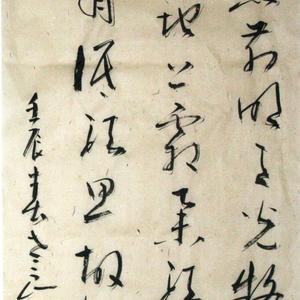 前明月光疑
地上霜舉頭
月低頭思故
壬辰春